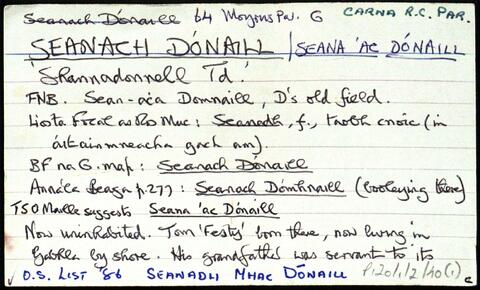 Seanach Dónaill 64 Moyrus Par. G CARNA R.C. PAR.
SEANACH DÓNAILL / SEANA 'AC DÓNAILL
Shannadonnell Td.
FNB. Sean-aċa Domnaill, D's old field.
Liosta Focal as Ros Muc: Seanadh, f., taobh cnoic (in
áiteainmneacha gach am).
BF na G. map: Seanach Dónaill
Annála Beaga p.277: Seanach Dómhnaill (booleying there)
TSO Maille suggests Seana 'ac Dónaill
Now uninhabited. Tom 'Festy' born there, now living in
by shore. His grandfather was servant to its
O.S. LIST '86 SEANADH MHAC DÓNAILL P120/1/2/40(1)